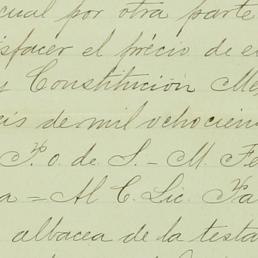 cual por otra parte
isfacer el précio de es
y Constitución Me
eis de mil ochocien
P.o. de S. - M. Fe
a = Al C. Lic. Pa
albacea de la testa